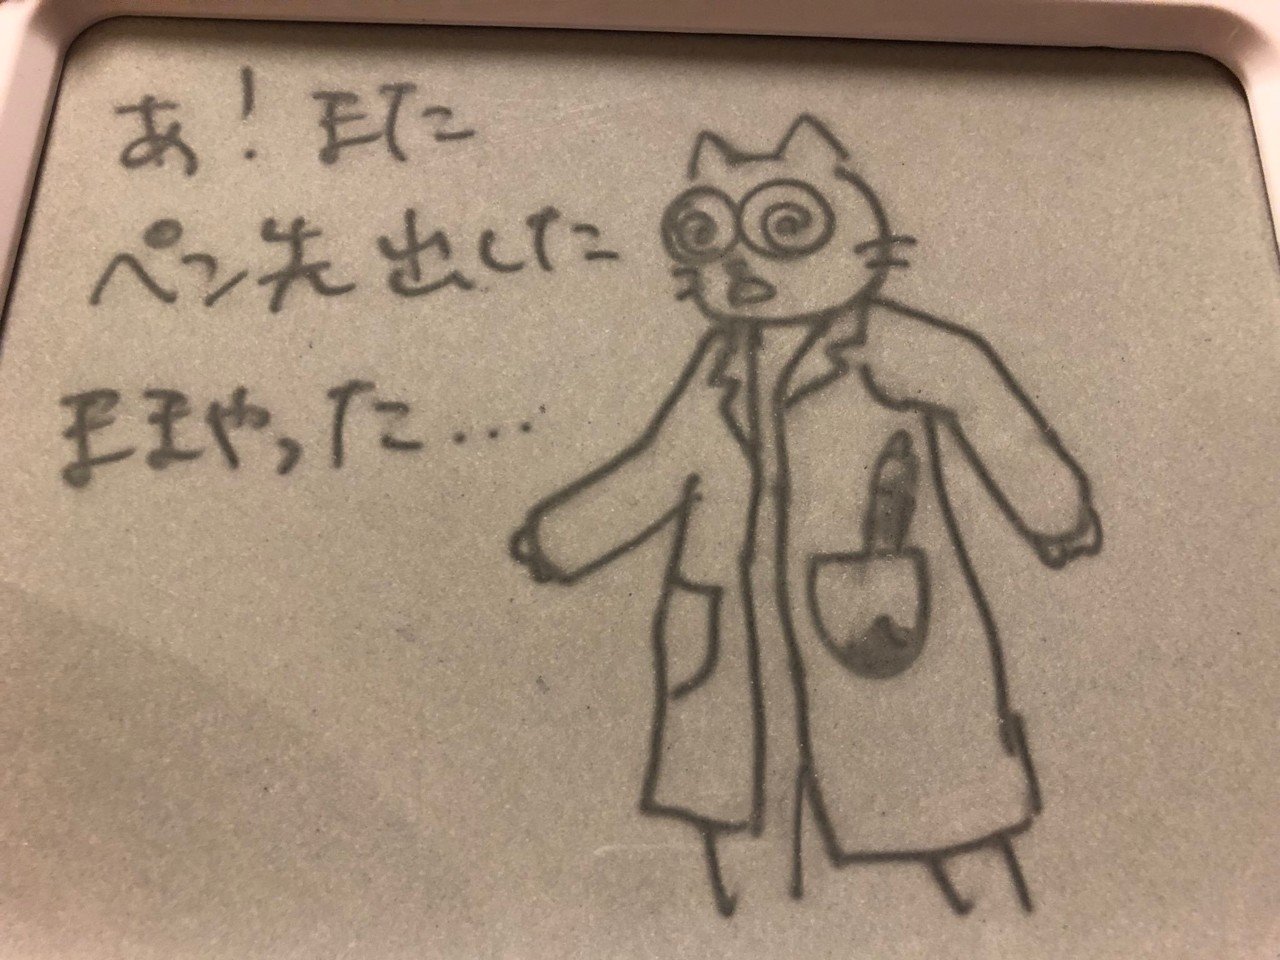 あ！また
ペン先出した
ままやった…